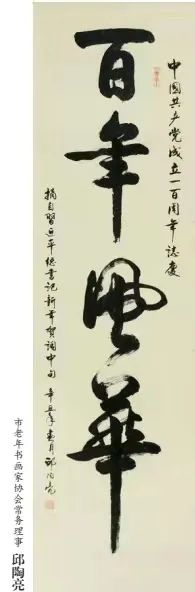 中國共产党成立一百周年誌慶
百年風華
摘自習近平總書記新年賀詞中句 辛丑年 月 邱陶亮
市老年书画家协会常务理事 邱陶亮